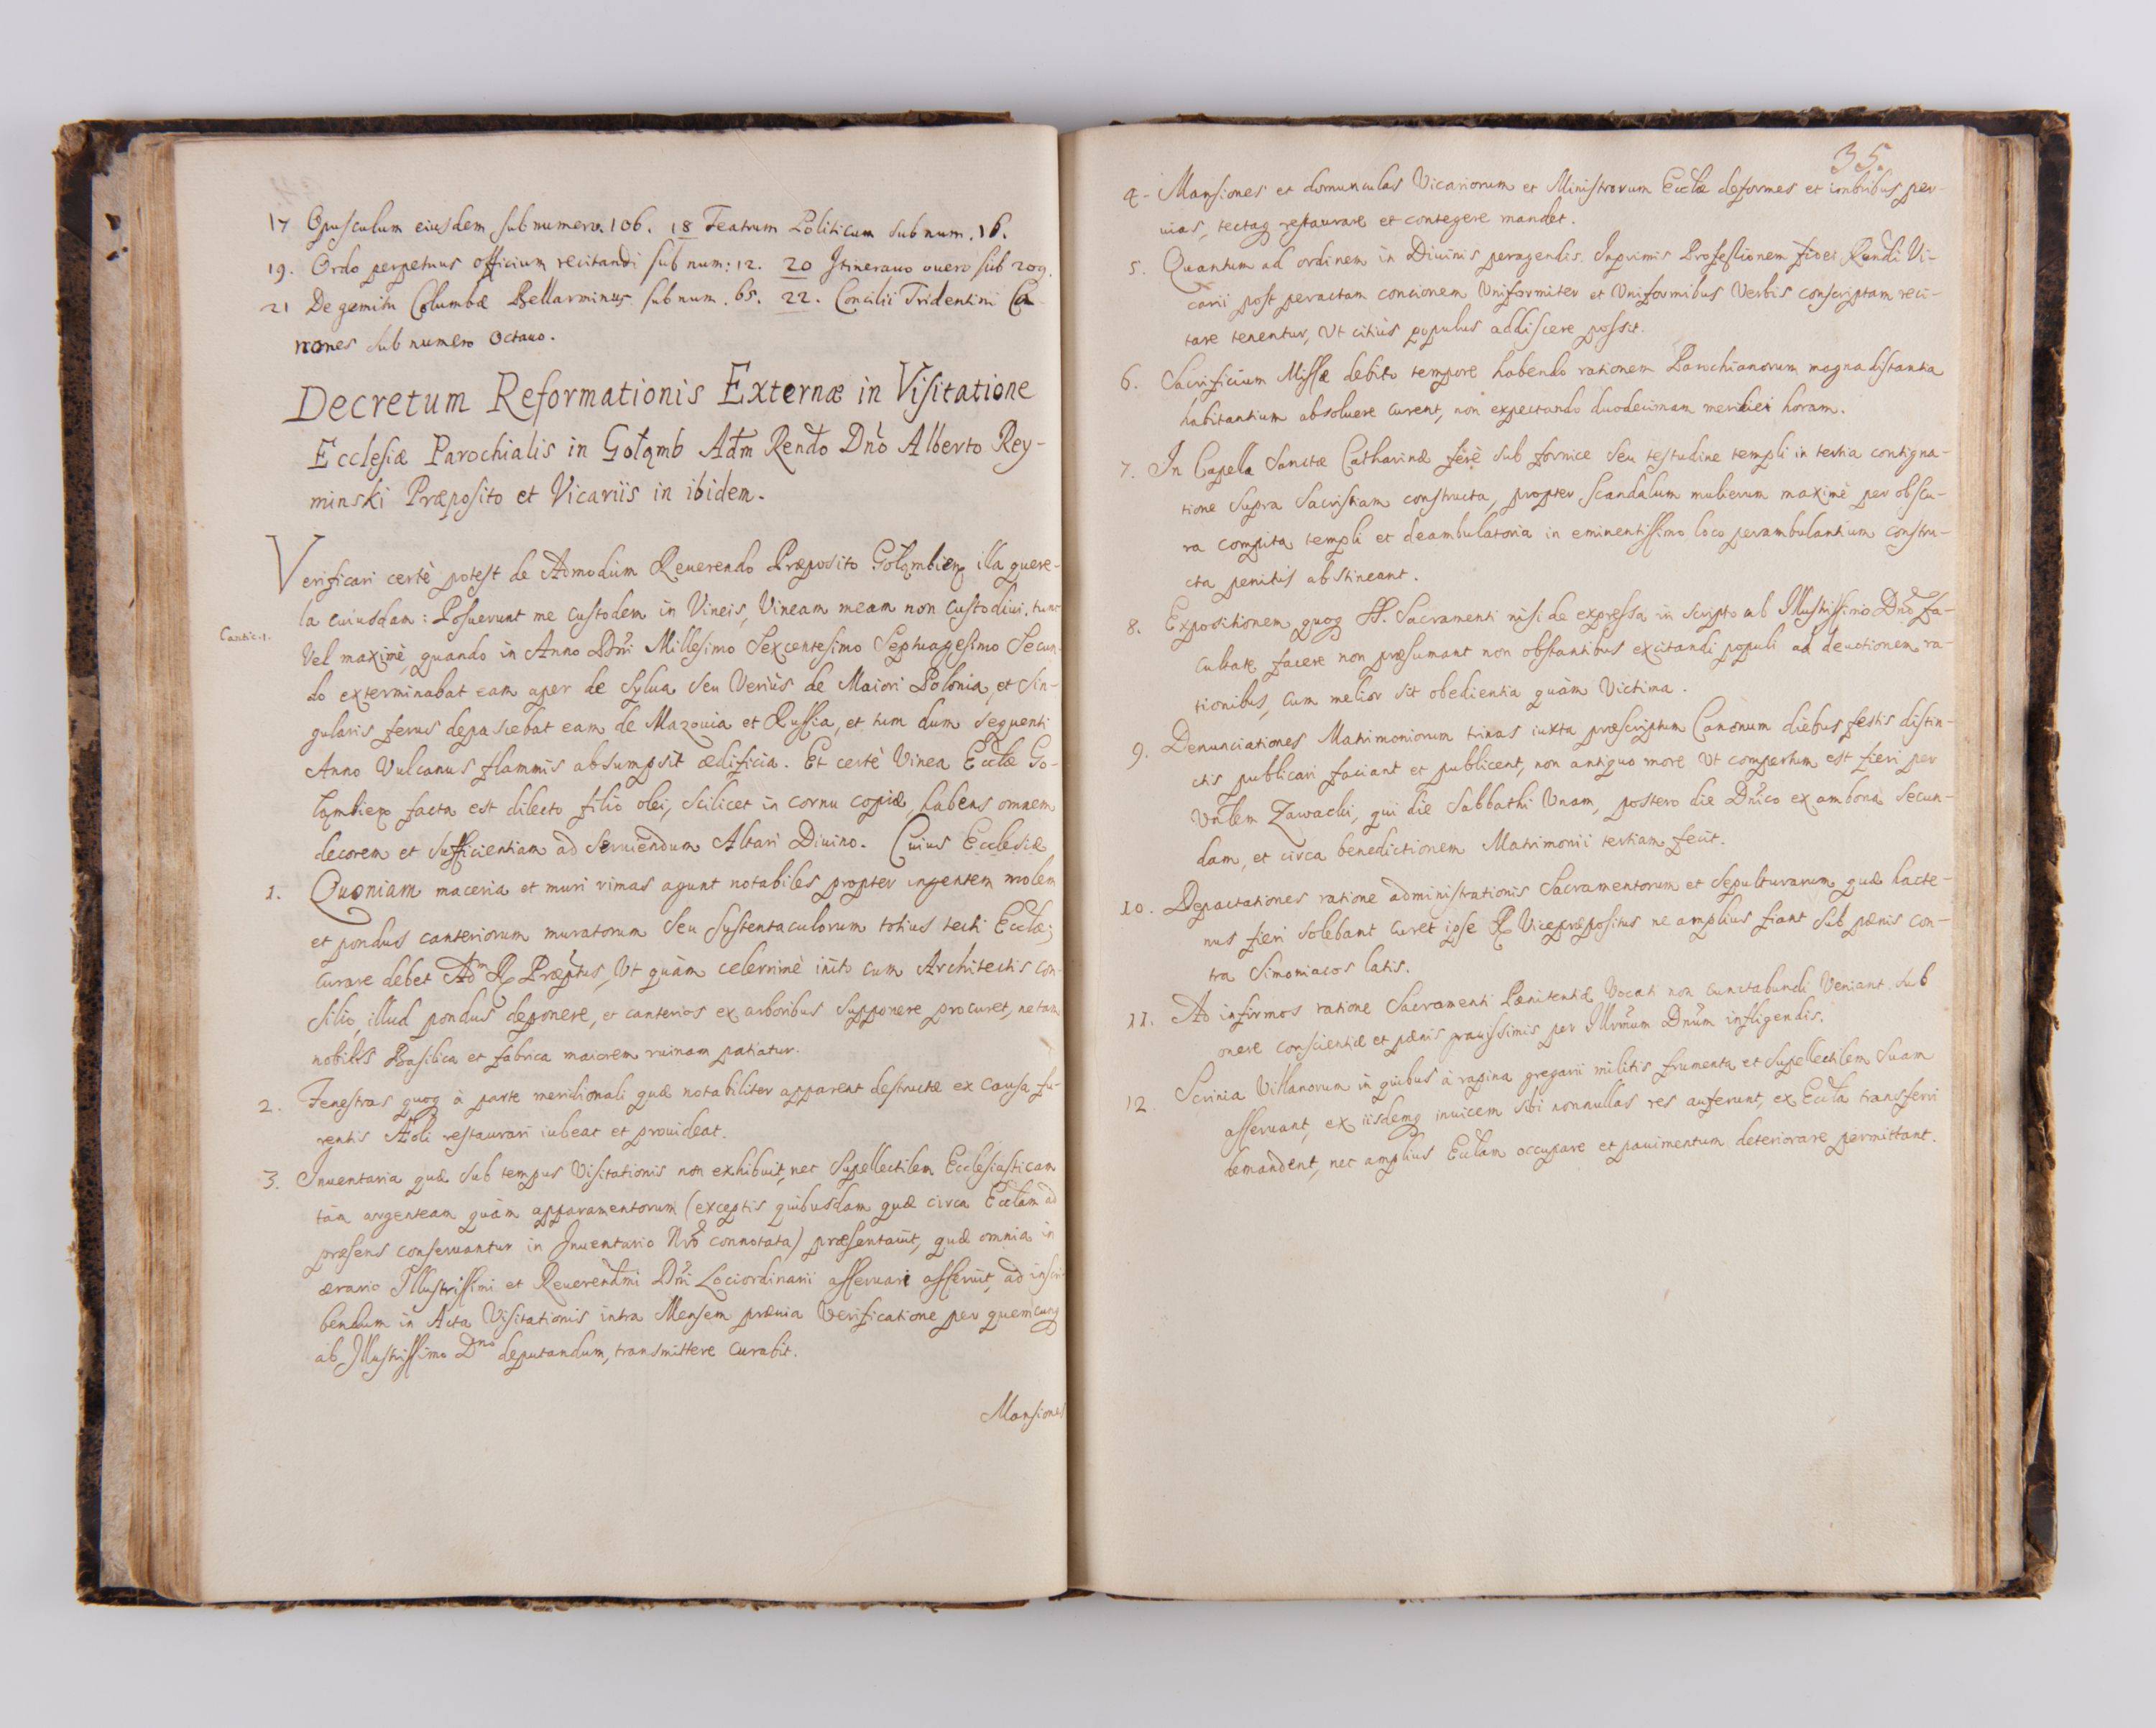 17 Opusculum eiusdem sub numero. 106. 18 Teatrum Politicum sub num. 16.
19. Ordo perpetuus officium recitandi sub num: 12. 20 Itinerario vuero sub 209.
21 De gemitu Columbæ Bellarminus sub num. 65. 22. Concilii Tridentini Ca-
nones sub numero Octauo.
Decretum Reformationis Externæ in Visitatione
Ecclesiæ Parochialis in Gołąmb Adm Rendo Dno Alberto Rey-
minski Præposito et Vicariis in ibidem.
Verificari certè potest de Admodùm Reuerendo Præposito Gołąmbien illa quere-
la cuiusdam: Posuerunt me custodem in Vineis, Vineam meam non custodiui. tunc
Cantic. 1.
Vel maximè, quando in Anno Dni Millesimo Sexcentesimo Septuagesimo Secun-
do exterminabat eam aper de sylua seu Veriùs de Maiori Polonia, et sin-
gularis ferus depascebat eam de Mazouia et Russia, et tum dum sequenti
Anno Vulcanus flammis absumpsit ædificia. Et certè Vinea Ecclæ Go-
łąmbien facta est dilecto filio olei, scilicet in cornu copiæ, habens omnem
decorem et sufficientiam ad seruiendum Altari Diuino. Cuius Ecclesiæ
1. Quoniam maceria et muri rimas agunt notabiles propter ingentem molem
et pondus canteriorum muratorum seu sustentaculorum totius tecti Ecclæ;
curare debet Adm R Præptus, Vt quàm celerrimè inito cum Architectis con-
silio, illud pondus deponere, et canterios ex arboribus supponere procuret, ne tam
nobilis Basilica et fabrica maiorem ruinam patiatur.
2. Fenestras quoq à parte meridionali quæ notabiliter apparent destructæ ex causa fu-
rentis Æoli restaurari iubeat et prouideat.
3. Inuentaria quæ sub tempus Visitationis non exhibuit, nec Supellectilem Ecclesiasticam
tàm argenteam quàm apparamentorum (exceptis quibusdam quæ circa Ecclam ad
præsens conseruantur in Inuentario Nro connotata) præsentauit, quæ omnia in
ærario Illustrissimi et Reuerendmi Dni Lociordinarii asseruari asseruit, ad inscri-
bendum in Acta Visitationis intra Mensem præuia Verificatione per quemcunq
ab Illustrissimo Dno deputandum, transmittere curabit.
Mansiones
35.
4- Mansiones et domunculas Vicariorum et Ministrorum Ecclæ deformes et imbribus per-
uias, tectaq restaurare et contegere mandet.
5. Quantum ad ordinem in Diuinis peragendis. Inprimis Professionem fidei Rendi Vi-
carii post peractam concionem Uniformiter et Uniformibus Verbis conscriptam reci-
tare tenentur, Vt citiùs populus addiscere possit.
6. Sacrificium Missæ debito tempore habendo rationem Parochianorum magna distantia
habitantium absoluere curent, non expectando duodecimam meridiei horam.
7. In Capella Sanctæ Catharinæ ferè sub fornice seu testudine templi in tertia contigna-
tione supra Sacristiam constructa, propter scandalum mulierum maximè per obscu-
ra compita templi et deambulatoria in eminentissimo loco perambulantium constru-
cta penitùs abstineant.
8. Expositionem quoq SS. Sacramenti nisi de expressa in scripto ab Illustrissimo Dno fa-
cultate facere non præsumant non obstantibus excitandi populi ad deuotionem ra-
tionibus, cum melior sit obedientia quàm Victima.
9. Denunciationes Matrimoniorum trinas iuxta præscriptum Canonum diebus festis distin-
ctis publicari faciant et publicent, non antiquo more Vt compertum est fieri per
Vnlem Zawacki, qui die Sabbathi Vnam, postero die Dnico ex ambona secun-
dam, et circa benedictionem Matrimonii tertiam fecit.
10. Depactationes ratione administrationis Sacramentorum et sepulturarum quæ hacte-
nus fieri solebant curet ipse R Vicepræpositus ne amplius fiant sub pænis con-
tra Simoniacos latis.
11. Ad infirmos ratione Sacramenti Pænitentiæ Vocati non cunctabundi Veniant sub
onere conscientiæ et pænis grauissimis per Illmum Dnum infligendis.
12 Scrinia Villanorum in quibus à rapina gregarii militis frumenta et supellectilem suam
asseruant, ex iisdemq inuicem sibi nonnullas res auferunt, ex Eccla transferri
demandent, nec amplius Ecclam occupare et pauimentum deteriorare permittant.